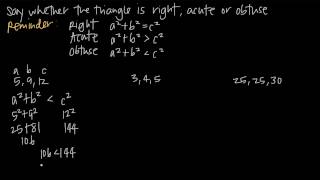 Say whether the triangle is right, acute or obtuse
Reminder: Right a²+b²=c²
Acute a²+b²>c²
Obtuse a²+b²<c²
a b c
5, 9, 12 3, 4, 5 25, 25, 30
a²+b² < c²
5²+9² 12²
25+81 144
106
106<144